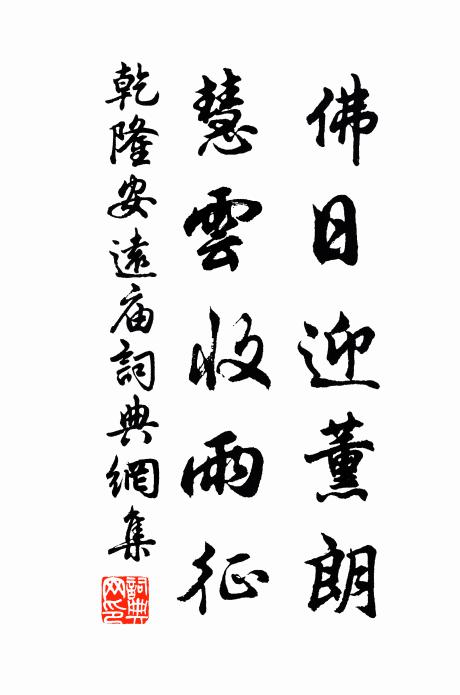 佛日迎薰朗
慧雲收雨征
乾隆安遠庙詞典網集
詞典網印